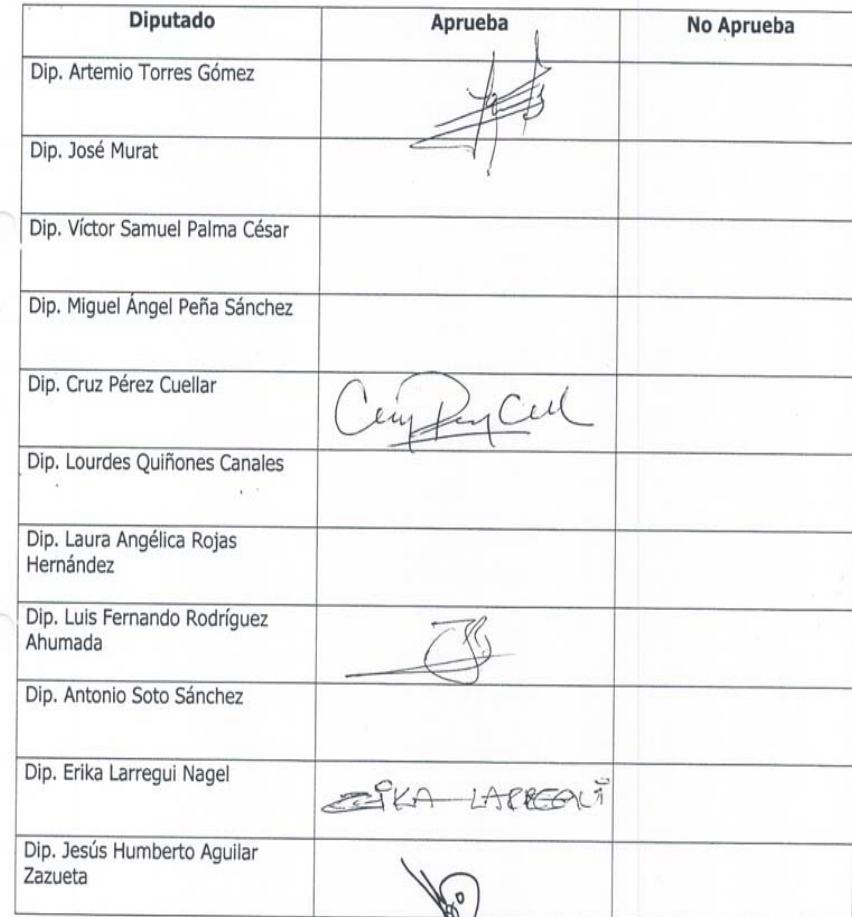 Diputado Aprueba No Aprueba
Dip. Artemio Torres Gómez
Dip. José Murat
Dip. Víctor Samuel Palma César
Dip. Miguel Ángel Peña Sánchez
Dip. Cruz Pérez Cuellar
Dip. Lourdes Quiñones Canales
Dip. Laura Angélica Rojas
Hernández
Dip. Luis Fernando Rodríguez
Ahumada
Dip. Antonio Soto Sánchez
Dip. Erika Larregui Nagel
ERIKA LARREGUI
Dip. Jesús Humberto Aguilar
Zazueta